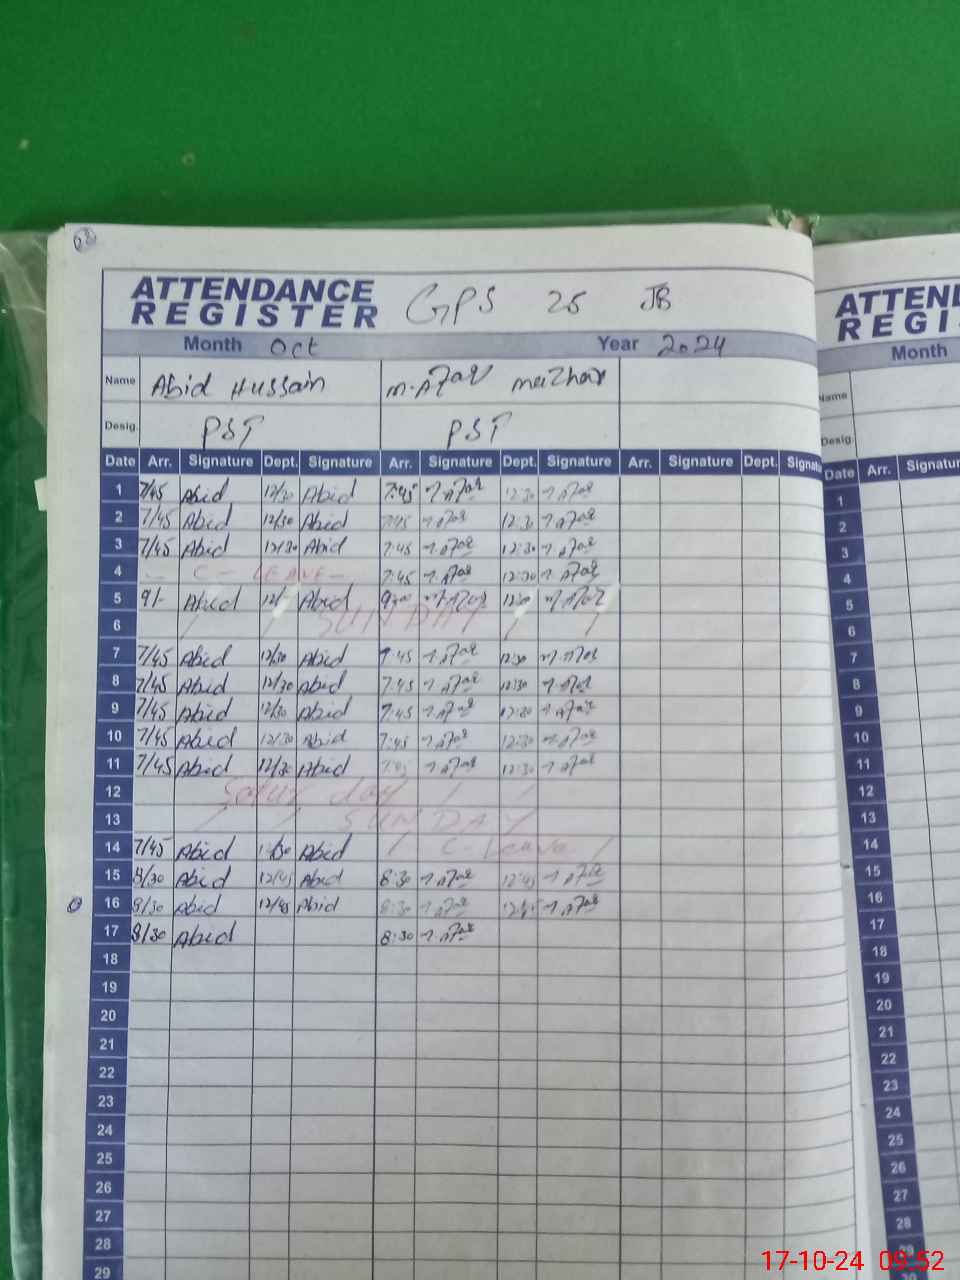 ATTENDANCE REGISTER GPS 25 JB
Month Oct Year 2024
Name Abid Hussain M. Azar
Desig. PST PST
Date Arr. Signature Dept. Signature Arr. Signature Dept. Signature Arr. Signature Dept. Signatu
1 7/45 Abid 12/30 Abid 7:45 12:30
2 7/45 Abid 12/30 Abid 7:45 12:30
3 7/45 Abid 12/30 Abid 7:45 12:30
4 - C - LEAVE - 7:45 12:30
5 9/- Abid 12/ Abid 9:00
6 SUNDAY
7 7/45 Abid 12/30 Abid 7:45 12:30
8 7/45 Abid 12/30 Abid 7:45 12:30
9 7/45 Abid 12/30 Abid 7:45 12:30
10 7/45 Abid 12/30 Abid 7:45 12:30
11 7/45 Abid 12/30 Abid 7:45 12:30
12 Satur day
13 SUNDAY
14 7/45 Abid Abid C- Leave
15 8/30 Abid 12/45 Abid 8:30 12:45
16 8/30 Abid 12/45 Abid 8:30 12:45
17 8/30 Abid 8:30
18
19
20
21
22
23
24
25
26
27
28
29
ATTEN
REGI
Month
Name
Desig.
Date Arr. Signatur
1
2
3
4
5
6
7
8
9
10
11
12
13
14
15
16
17
18
19
20
21
22
23
24
25
26
27
28
29
17-10-24 09:52